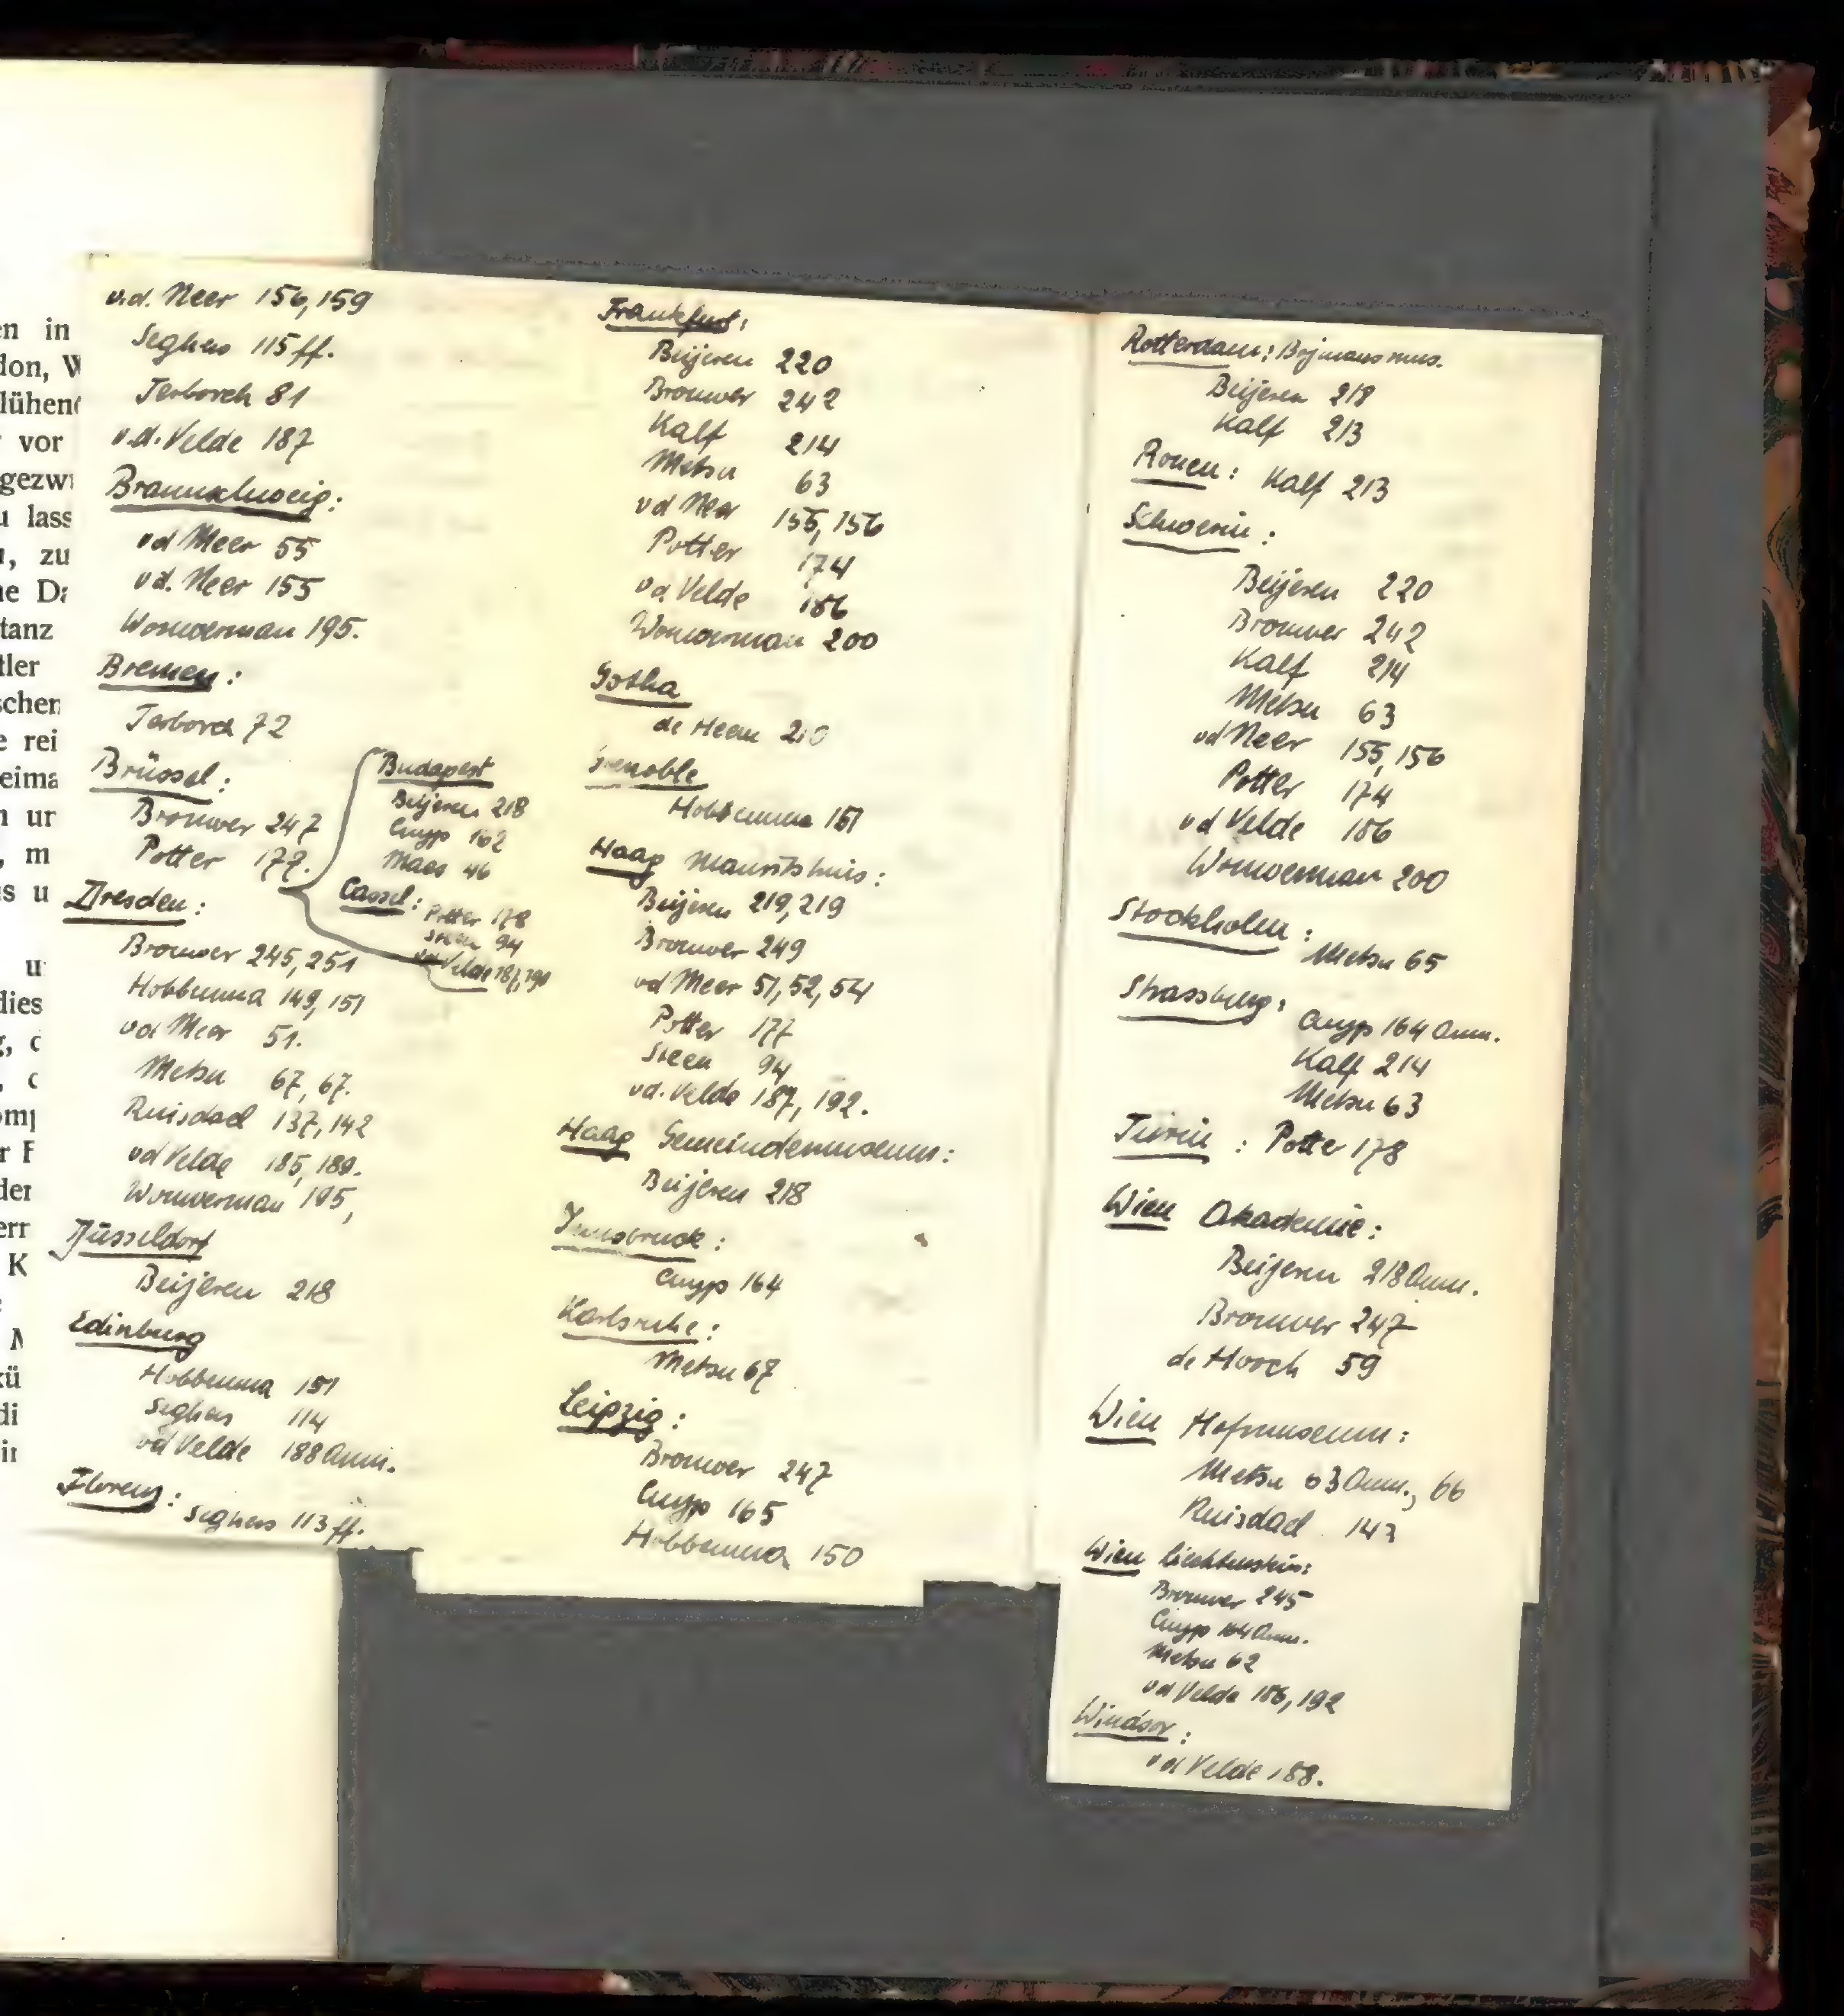 en in
don, W
lühend
vor
gezwi
u lass
, zu
ne Da
tanz
tler
schen
e rei
eima
n ur
, m
s u
u
dies
g, c
, c
omp
r F
der
err
K
M
kü
di
in
v.d. Neer 156, 159
Seghers 115 ff.
Terborch 81
v.d. Velde 187
Braunschweig:
vd Meer 55
vd. Neer 155
Wouwerman 195.
Bremen:
Terborch 72
Brüssel:
Brouwer 247
Potter 177.
Budapest
Beijeren 218
Cuyp 162
Maes 46
Cassel:
Potter 178
Steen 94
vd Velde 187, 190
Dresden:
Brouwer 245, 251
Hobbema 149, 151
vd Meer 51.
Metsu 67, 67.
Ruisdael 137, 142
vd Velde 185, 189.
Wouwerman 195,
Düsseldorf
Beijeren 218
Edinburg
Hobbema 151
Seghers 114
vd Velde 188 Anm.
Florenz:
Seghers 113 ff.
Frankfurt:
Beijeren 220
Brouwer 242
Kalf 214
Metsu 63
vd Neer 155, 156
Potter 174
vd Velde 186
Wouwerman 200
Gotha
de Heem 210
Grenoble
Hobbema 151
Haag Mauritshuis:
Beijeren 219, 219
Brouwer 249
vd Meer 51, 52, 54
Potter 177
Steen 94
vd. Velde 187, 192.
Haag Gemeindemuseum:
Beijeren 218
Innsbruck:
Cuyp 164
Karlsruhe:
Metsu 67
Leipzig:
Brouwer 247
Cuyp 165
Hobbema 150
Rotterdam: Bojmansmus.
Beijeren 218
Kalf 213
Rouen: Kalf 213
Schwerin:
Beijeren 220
Brouwer 242
Kalf 214
Metsu 63
vd Neer 155, 156
Potter 174
vd Velde 186
Wouwerman 200
Stockholm:
Metsu 65
Strassburg:
Cuyp 164 Anm.
Kalf 214
Metsu 63
Turin: Potter 178
Wien Akademie:
Beijeren 218 Anm.
Brouwer 247
de Hooch 59
Wien Hofmuseum:
Metsu 63 Anm., 66
Ruisdael 143
Wien Liechtenstein:
Brouwer 245
Cuyp 164 Anm.
Metsu 62
vd Velde 186, 192
Windsor:
vd Velde 188.